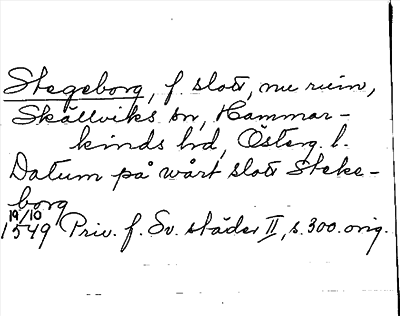 Stegeborg, f. slott, nu ruin,
Skällviks sn, Hammar-
kinds hd, Österg. l.
Datum på wårt slott Steke-
borg
19/10
1549 Priv. f. Sv. städer II, s. 300. orig.